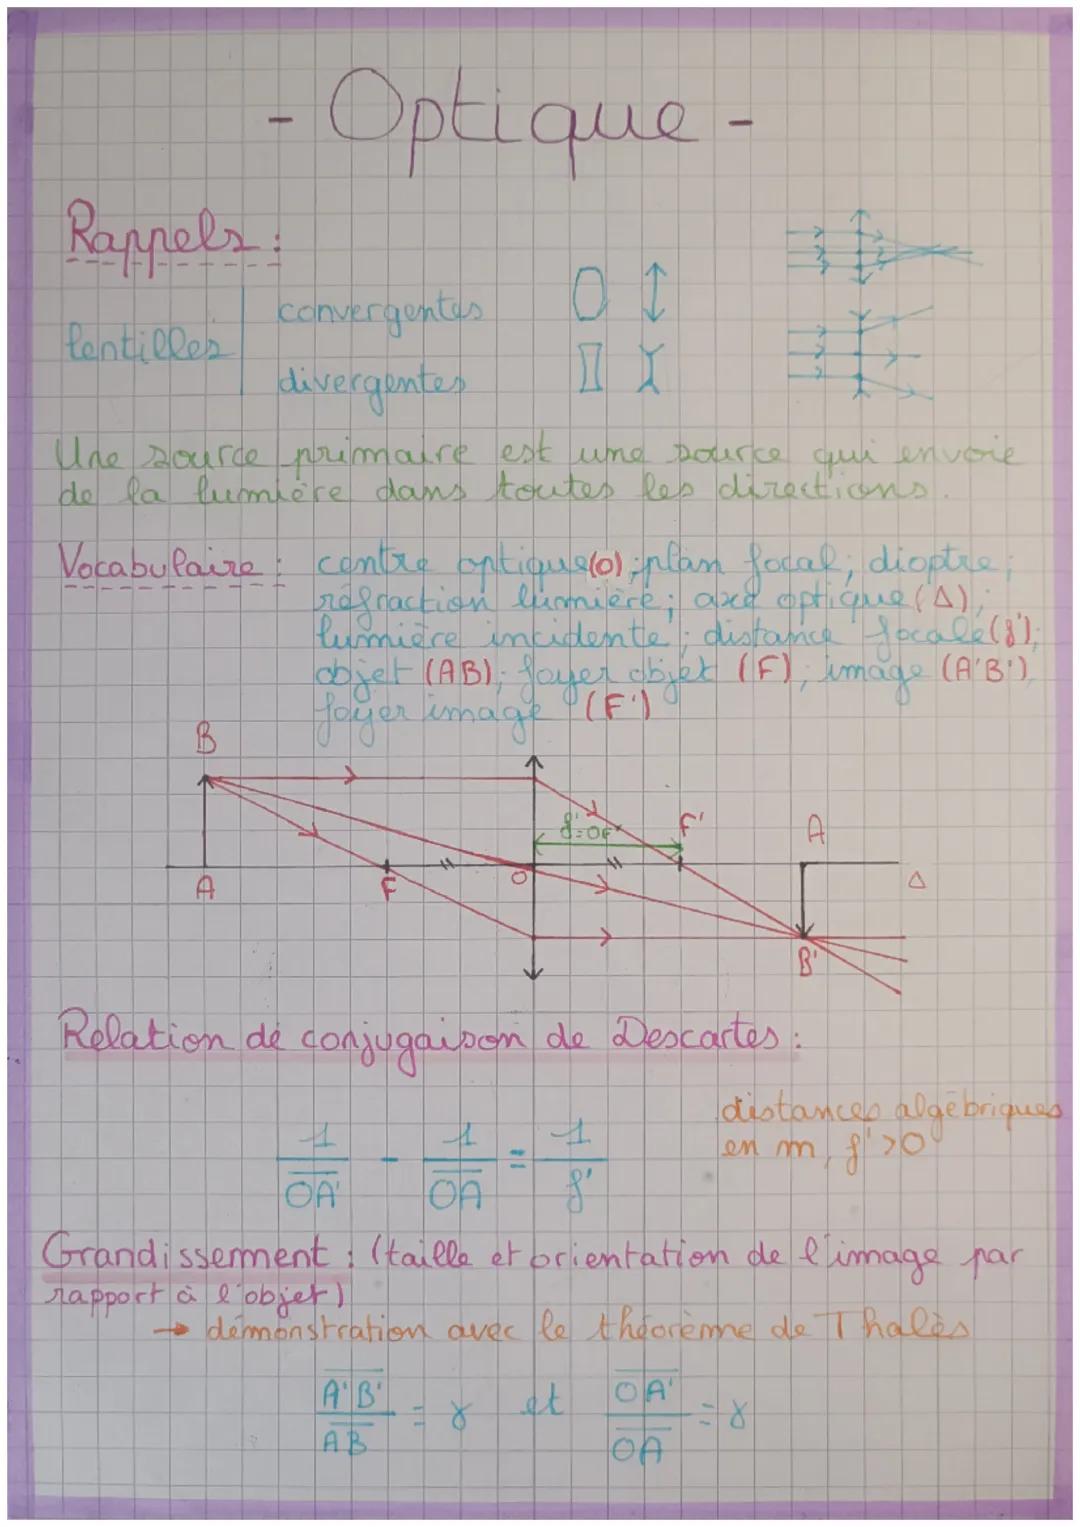 - Optique -
Rappels :
lentilles
convergentes
divergentes
Une source primaire est une source qui envoie
de la lumière dans toutes les directions.
Vocabulaire : centre optique (O) ; plan focal ; dioptre ;
réfraction lumière ; axe optique (Δ) ;
lumière incidente ; distance focale (f') ;
objet (AB) ; foyer objet (F) ; image (A'B') ;
foyer image (F')
B
f'=OF'
F'
A
A
F
O
Δ
B'
Relation de conjugaison de Descartes :
distances algébriques
en m, f'>0
1/OA' - 1/OA = 1/f'
Grandissement : (taille et orientation de l'image par
rapport à l'objet)
→ démonstration avec le théorème de Thalès
A'B'/AB = γ et OA'/OA = γ